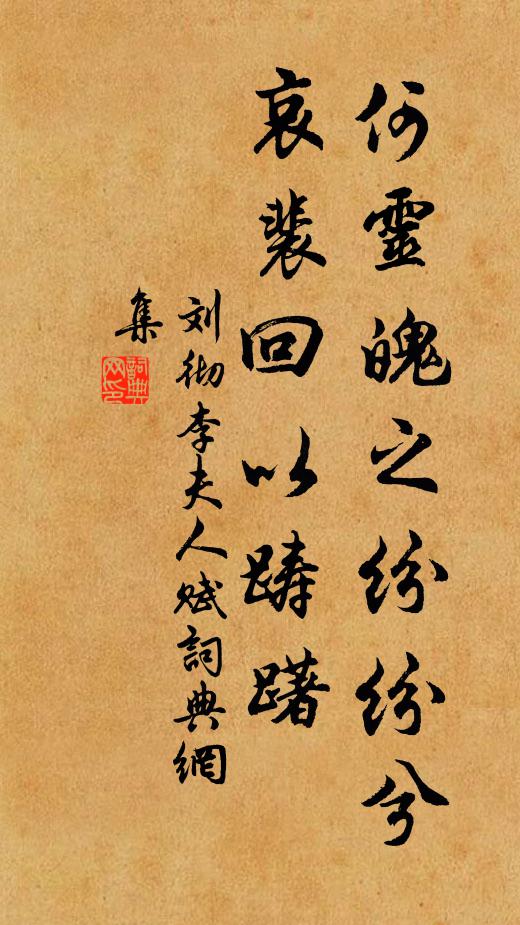 何靈魄之紛紛兮
哀裴回以躊躇
刘彻李夫人赋詞典網
集
詞典网印